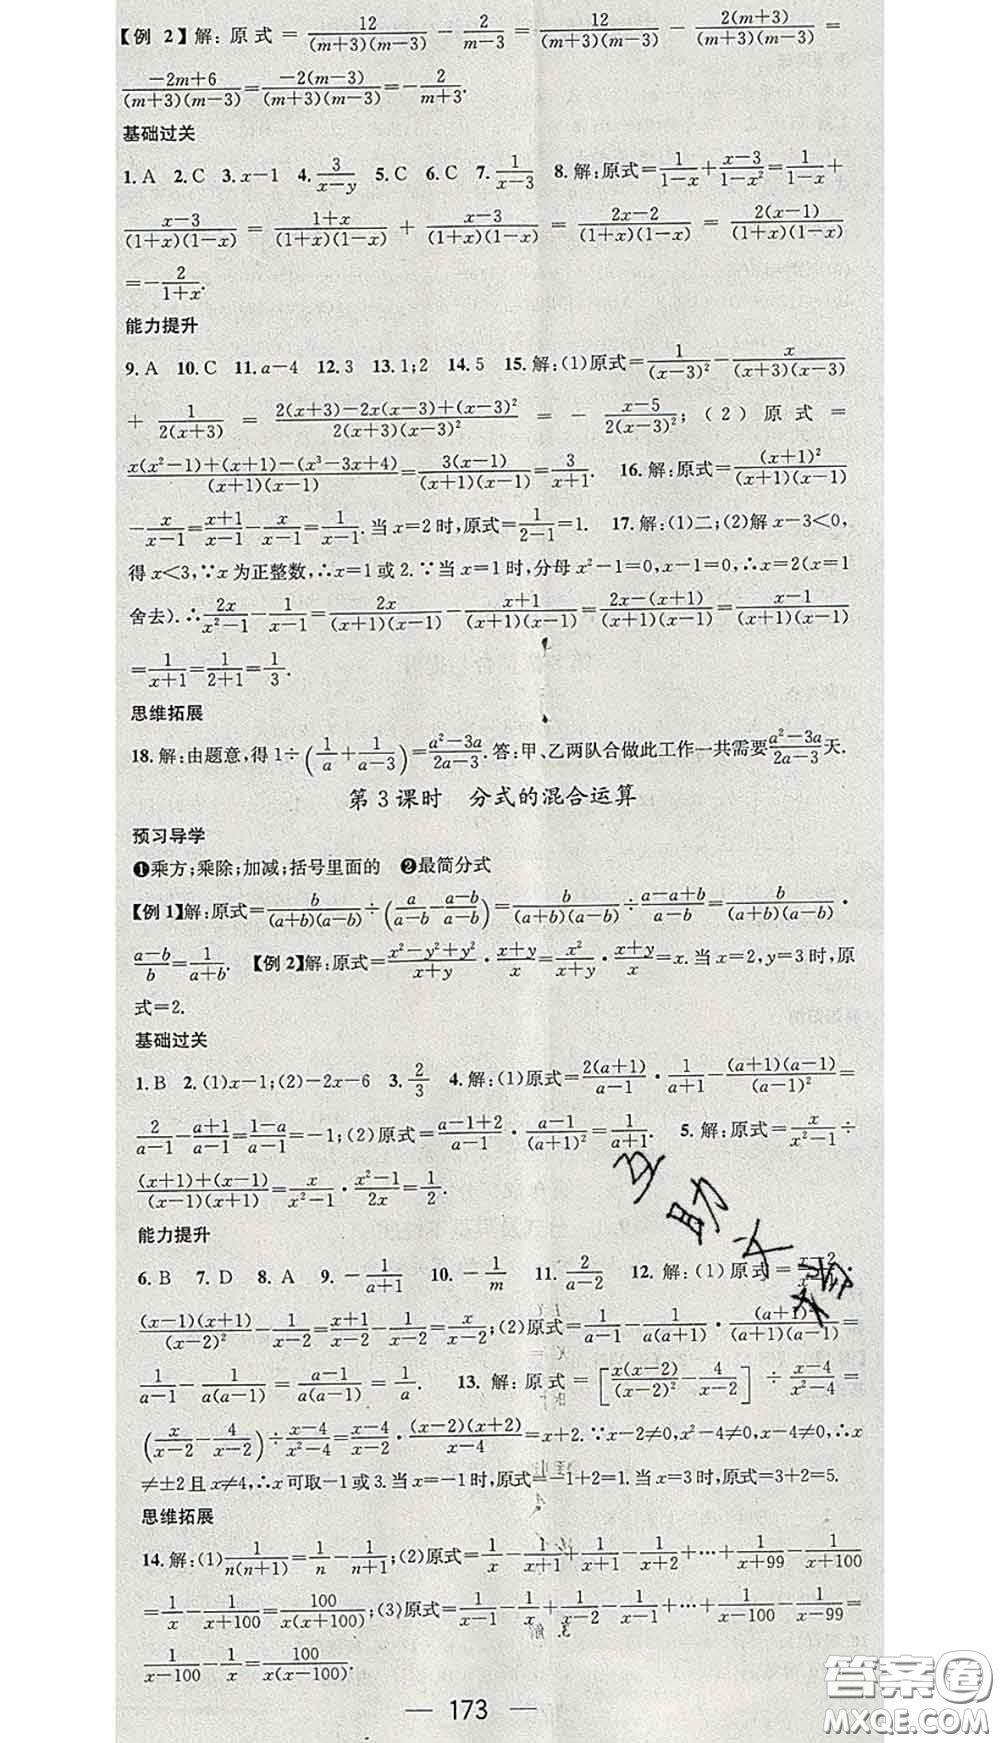 【例 2】解:原式=12/((m+3)(m-3))-2/(m-3)=12/((m+3)(m-3))-2(m+3)/((m+3)(m-3))=
(-2m+6)/((m+3)(m-3))=-2(m-3)/((m+3)(m-3))=-2/(m+3).
基础过关
1.A 2.C 3.x-1 4.3/(x-y) 5.C 6.C 7.1/(x-3) 8.解:原式=1/(1-x)+(x-3)/(1-x²)=1/(1-x)+
(x-3)/((1+x)(1-x))=(1+x)/((1+x)(1-x))+(x-3)/((1+x)(1-x))=(2x-2)/((1+x)(1-x))=2(x-1)/((1+x)(1-x))
=-2/(1+x).
能力提升
9.A 10.C 11.a-4 12.3 13.1;2 14.5 15.解:(1)原式=1/(x-3)²-x/((x+3)(x-3))
+1/(2(x+3))=(2(x+3)-2x(x-3)+(x-3)²)/(2(x+3)(x-3)²)=-(x-5)/(2(x-3)²);(2)原式=
(x(x²-1)+(x+1)-(x³-3x+4))/((x+1)(x-1))=3(x-1)/((x+1)(x-1))=3/(x+1). 16.解:原式=(x+1)²/((x+1)(x-1))
-x/(x-1)=(x+1)/(x-1)-x/(x-1)=1/(x-1).当x=2时,原式=1/(2-1)=1. 17.解:(1)二;(2)解x-3<0,
得x<3,∵x为正整数,∴x=1或2.∵当x=1时,分母x²-1=0,x-1=0,∴x=2(x=1
舍去).∴2x/(x²-1)-1/(x-1)=2x/((x+1)(x-1))-(x+1)/((x+1)(x-1))=(2x-(x+1))/((x+1)(x-1))=(x-1)/((x+1)(x-1))
=1/(x+1)=1/(2+1)=1/3.
思维拓展
18.解:由题意,得1÷(1/a+1/(a-3))=(a²-3a)/(2a-3).答:甲、乙两队合做此工作一共需要(a²-3a)/(2a-3)天.
第3课时 分式的混合运算
预习导学
❶乘方;乘除;加减;括号里面的 ❷最简分式
【例1】解:原式=b/((a+b)(a-b))÷(a/(a-b)-(a-b)/(a-b))=b/((a+b)(a-b))÷(a-a+b)/(a-b)=b/((a+b)(a-b))·
(a-b)/b=1/(a+b). 【例2】解:原式=(x²-y²+y²)/(x+y)·(x+y)/x=x²/(x+y)·(x+y)/x=x.当x=2,y=3时,原
式=2.
基础过关
1.B 2.(1)x-1;(2)-2x-6 3.2/3 4.解:(1)原式=2(a+1)/(a-1)·1/(a+1)-(a+1)(a-1)/(a-1)²=
2/(a-1)-(a+1)/(a-1)=(1-a)/(a-1)=-1;(2)原式=(a-1+2)/(a-1)·(a-1)/(a+1)²=1/(a+1). 5.解:原式=x/(x²-1)÷
((x+1)+(x-1))/((x-1)(x+1))=x/(x²-1)·(x²-1)/2x=1/2.
能力提升
6.B 7.D 8.A 9.-1/(a+1) 10.-1/m 11.2/(a-2) 12.解:(1)原式=
(x-1)(x+1)/(x-2)²-1/(x-2)=(x+1)/(x-2)-1/(x-2)=x/(x-2);(2)原式=1/(a-1)-1/(a(a+1))·(a+1)²/((a+1)(a-1))=
1/(a-1)-1/(a(a-1))=(a-1)/(a(a-1))=1/a. 13.解:原式=[x(x-2)/(x-2)²-4/(x-2)]÷(x-4)/(x²-4)=
(x/(x-2)-4/(x-2))÷(x-4)/(x²-4)=(x-4)/(x-2)·(x-2)(x+2)/(x-4)=x+2.∵x-2≠0,x²-4≠0,x-4≠0,∴x
≠±2且x≠4,∴x可取-1或3.当x=-1时,原式=-1+2=1.当x=3时,原式=3+2=5.
思维拓展
14.解:(1)1/(n(n+1))=1/n-1/(n+1);(2)原式=1/x-1/(x+1)+1/(x+1)-1/(x+2)+…+1/(x+99)-1/(x+100)
=1/x-1/(x+100)=100/(x(x+100));(3)原式=1/(x-1)-1/x+1/(x-2)-1/(x-1)+…+1/(x-100)-1/(x-99)=
1/(x-100)-1/x=100/(x(x-100)).
互助文档
— 173 —
答案圈
MXQE.COM